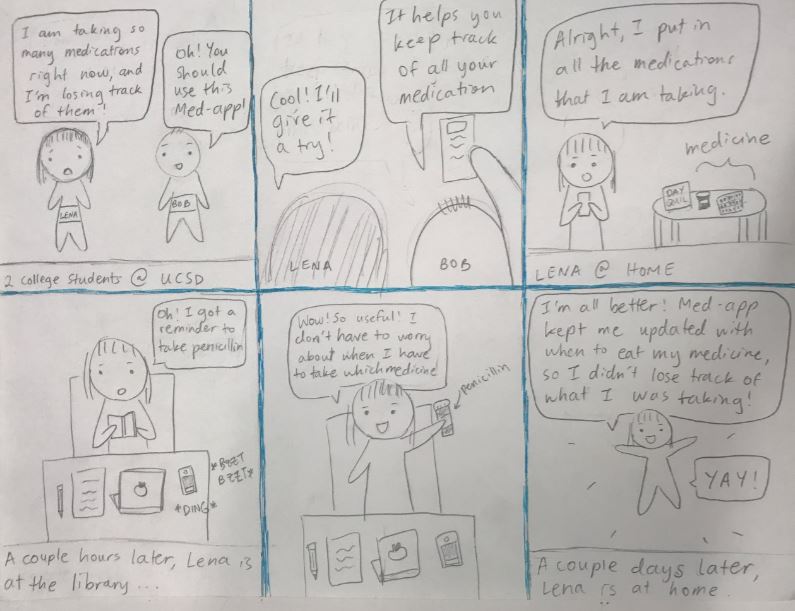 I am taking so
many medications
right now, and
I'm losing track
of them!
Oh! You
should
use this
Med-app!
LENA
BOB
2 college students @ UCSD
Cool! I'll
give it
a try!
It helps you
keep track
of all your
medication
LENA
BOB
Alright, I put in
all the medications
that I am taking.
medicine
DAY
QUIL
LENA @ HOME
Oh! I got a
reminder to
take penicillin
*BZZT
BZZT*
*DING*
A couple hours later, Lena is
at the library...
Wow! So useful! I
don't have to worry
about when I have
to take which medicine
penicillin
I'm all better! Med-app
kept me updated with
when to eat my medicine,
so I didn't lose track of
what I was taking!
YAY!
A couple days later,
Lena is at home.